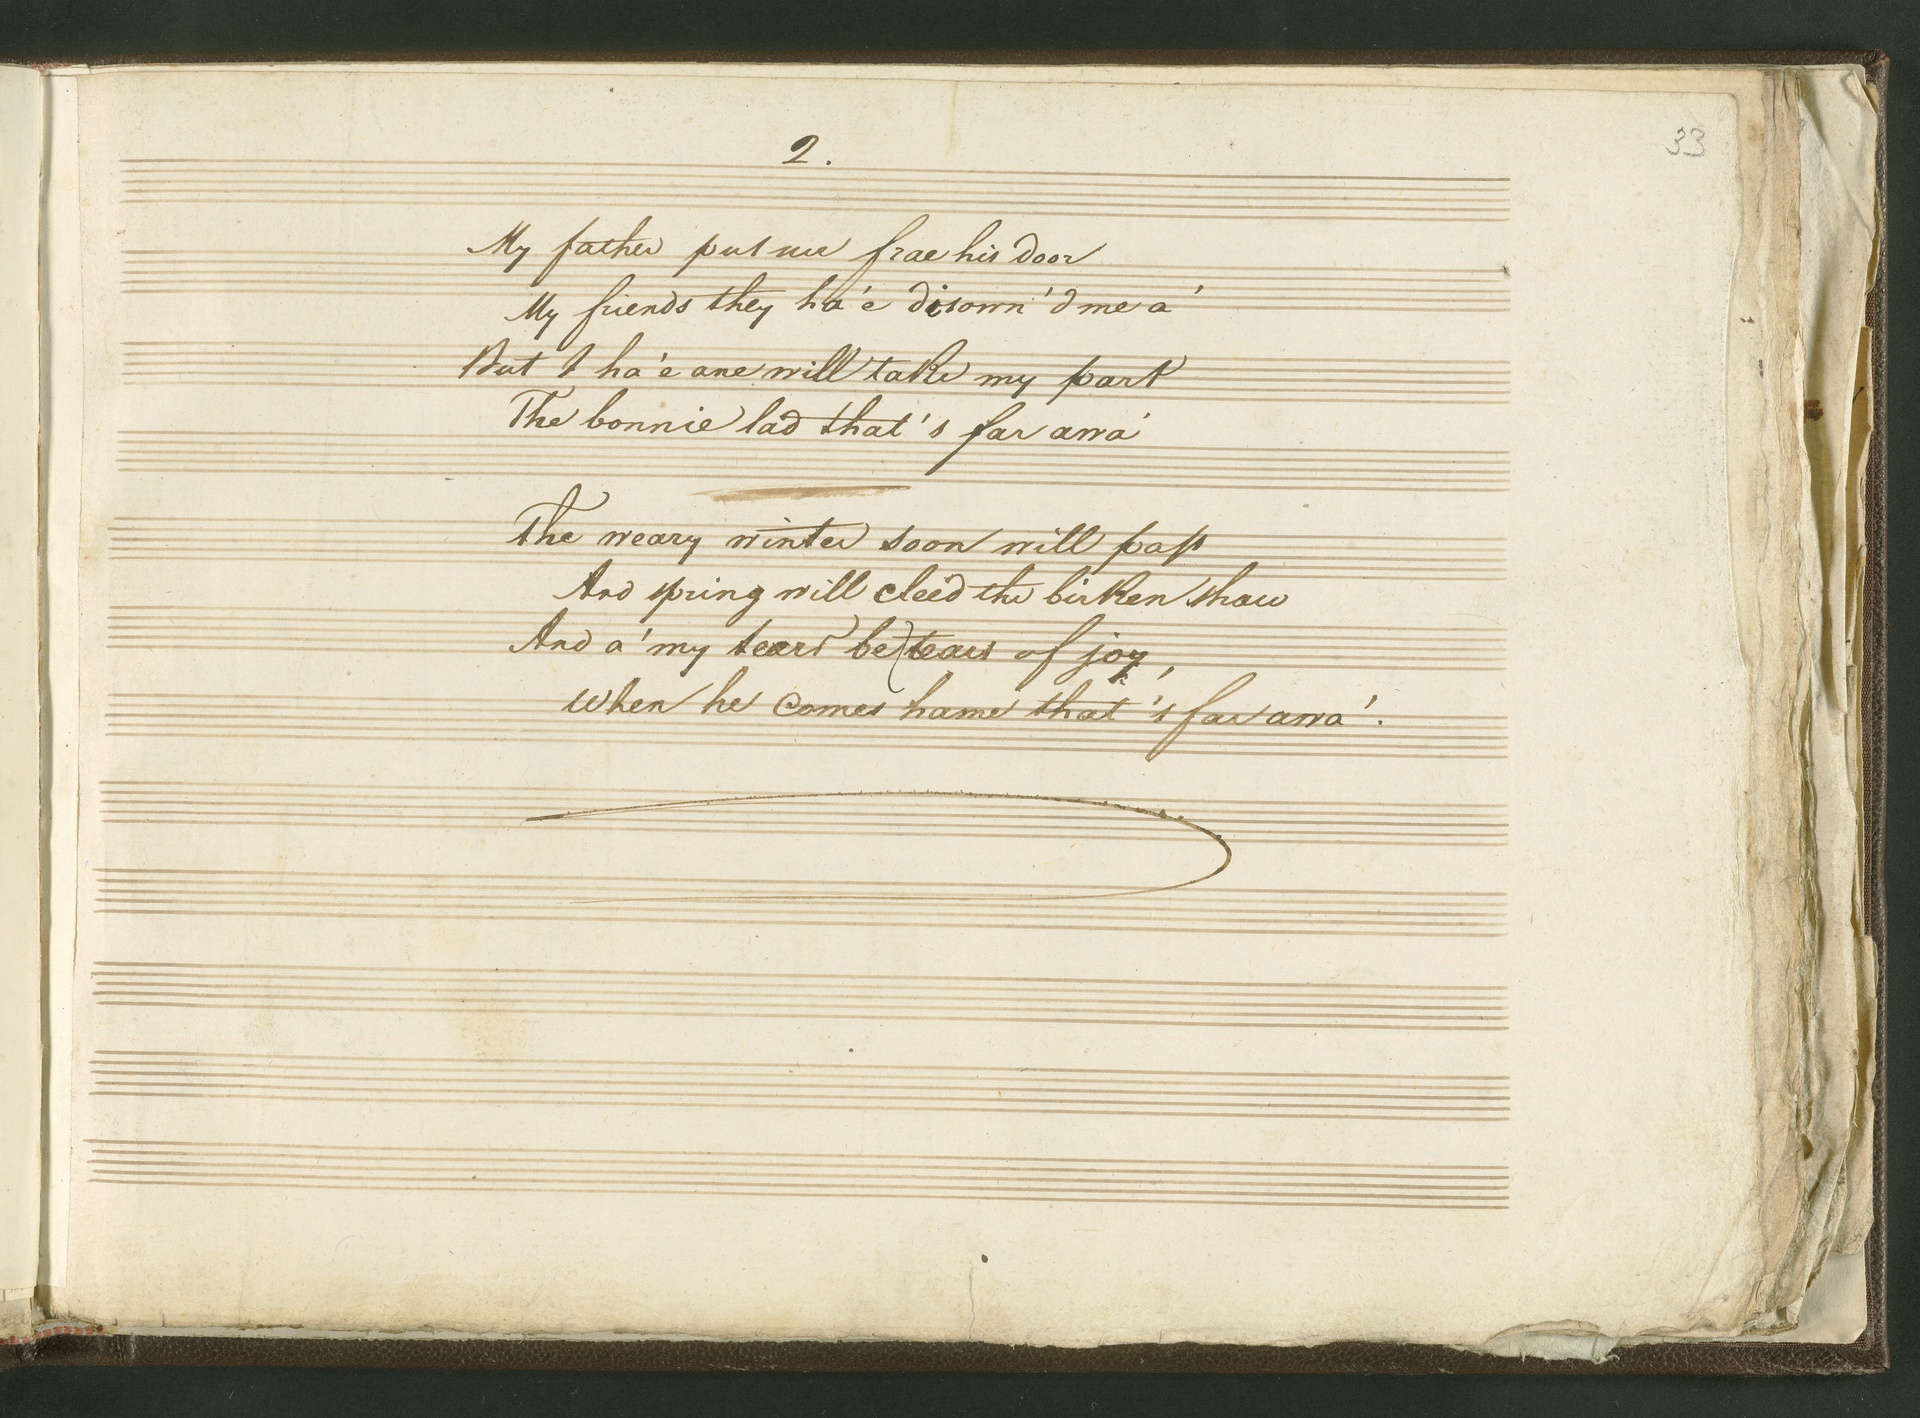 2.
33
My father put me frae his door
My friends they ha'e disown'd me a'
But I ha'e ane will take my part
The bonnie lad that's far awa'
The weary winter soon will paſs
And spring will cleed the birken shaw
And a' my tears be tears of joy,
When he comes hame that's far awa'.